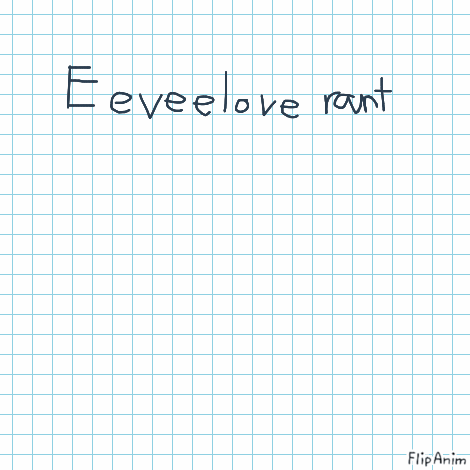 Eeveelove rant
FlipAnim